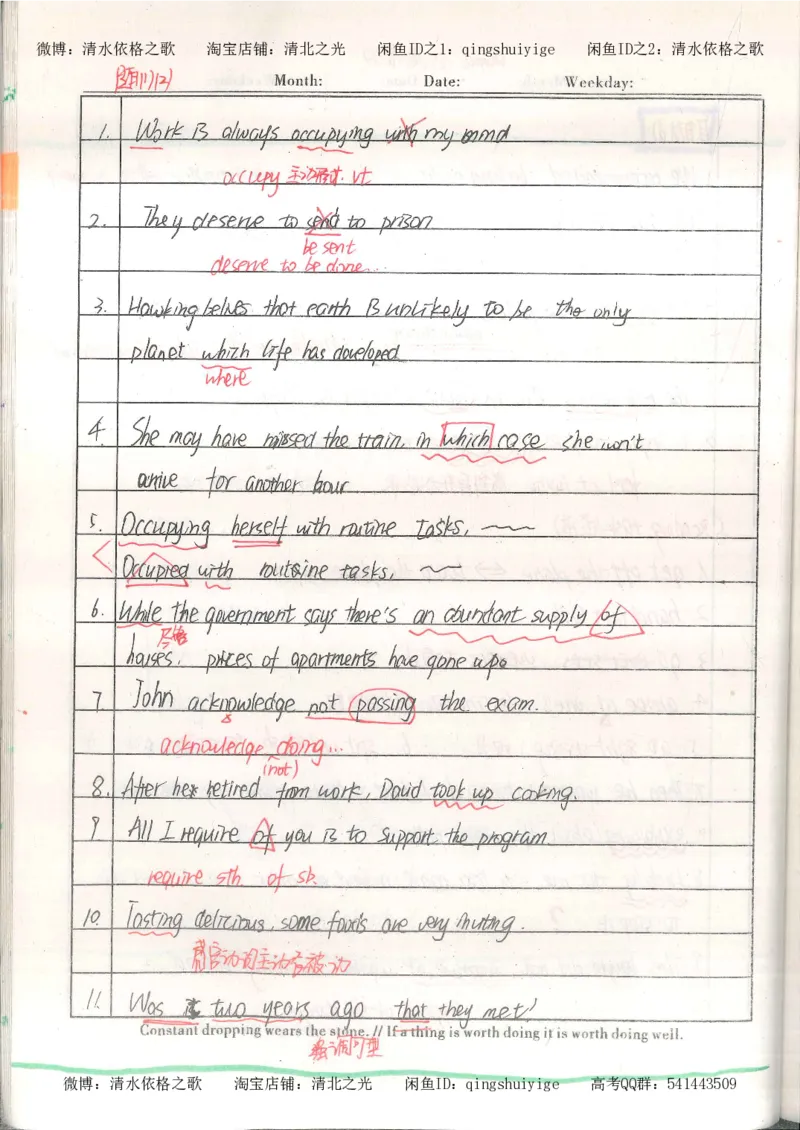 微博：清水依格之歌 淘宝店铺：清北之光 闲鱼ID之1：qingshuiyige 闲鱼ID之2：清水依格之歌
题1(1)(2)
Month: Date: Weekday:
1. Work is always occupying with my mind
occupy 主动 vt
2. They deserve to send to prison
be sent
deserve to be done...
3. Hawking belives that earth is unlikely to be the only
planet which life has developed
where
4. She may have missed the train, in which case she won't
arrive for another hour.
5. Occupying herself with routine tasks, ~~
Occupied with routine tasks, ~~
6. While the government says there's an abundant supply of
尽管
houses, prices of apartments have gone up.
7. John acknowledge not passing the exam.
acknowledge doing...
(not)
8. After he retired from work, David took up cooking.
9 All I require of you is to support the program.
require sth. of sb.
10. Tasting delicious, some foods are very inviting.
感官动词主动表被动
11. Was it two years ago that they met?
Constant dropping wears the stone. // If a thing is worth doing it is worth doing well.
强调句型
微博：清水依格之歌 淘宝店铺：清北之光 闲鱼ID：qingshuiyige 高考QQ群：541443509